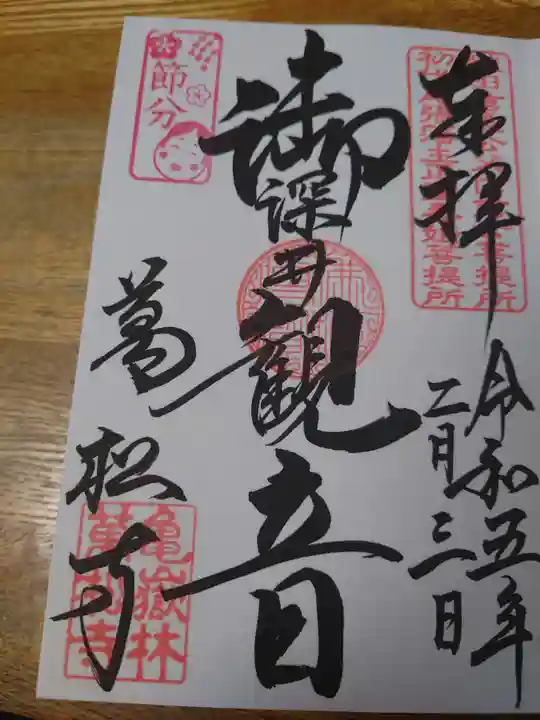 奉拝
令和五年
二月三日
御深井観音
萬松寺
節分
亀嶽林
萬松寺
菩提所
菩提所